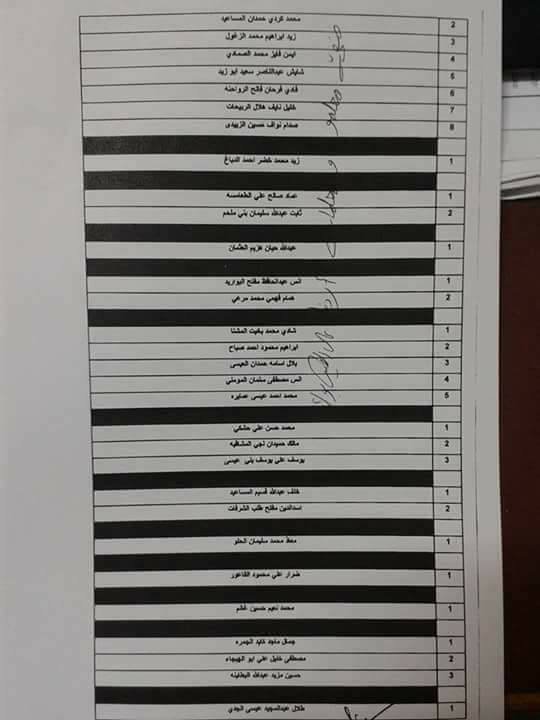 2 محمد كردي حمدان المساعيد
3 زيد ابراهيم محمد الزغول
4 ايمن فايز محمد الصمادي
5 شايش عبدالناصر سعيد ابو زيد
6 فادي فرحان فالح الرواحنه
7 خليل نايف هلال الربيحات
8 صدام نواف حسين الزبيدى
1 زيد محمد خضر احمد الدباغ
1 عماد صالح علي الطعامسه
2 ثابت عبدالله سليمان بني ملحم
1 عبدالله حيان هزيم العثمان
1 انس عبدالحافظ مفلح البواريد
2 همام فهمي محمد مرعي
1 شادي محمد بخيت المشنا
2 ابراهيم محمود احمد صباح
3 بلال اسامه حمدان العيسى
4 انس مصطفى سلمان المومني
5 محمد احمد عيسى عمايره
1 محمد حسن علي حشكي
2 مالك حميدان ناجي المشاقبه
3 يوسف علي يوسف بني عيسى
1 خلف عبدالله قسيم المساعيد
2 اسدالدين مفلح طلب الشرفات
1 معاذ محمد سليمان الحلو
1 ضرار علي محمود الفاعور
1 محمد نعيم حسين غنم
1 جمال ماجد خالد الجمره
2 مصطفى خليل علي ابو الهيجاء
3 حسين مزيد عبدالله البطاينه
1 طلال عبدالمجيد عيسى الجدي